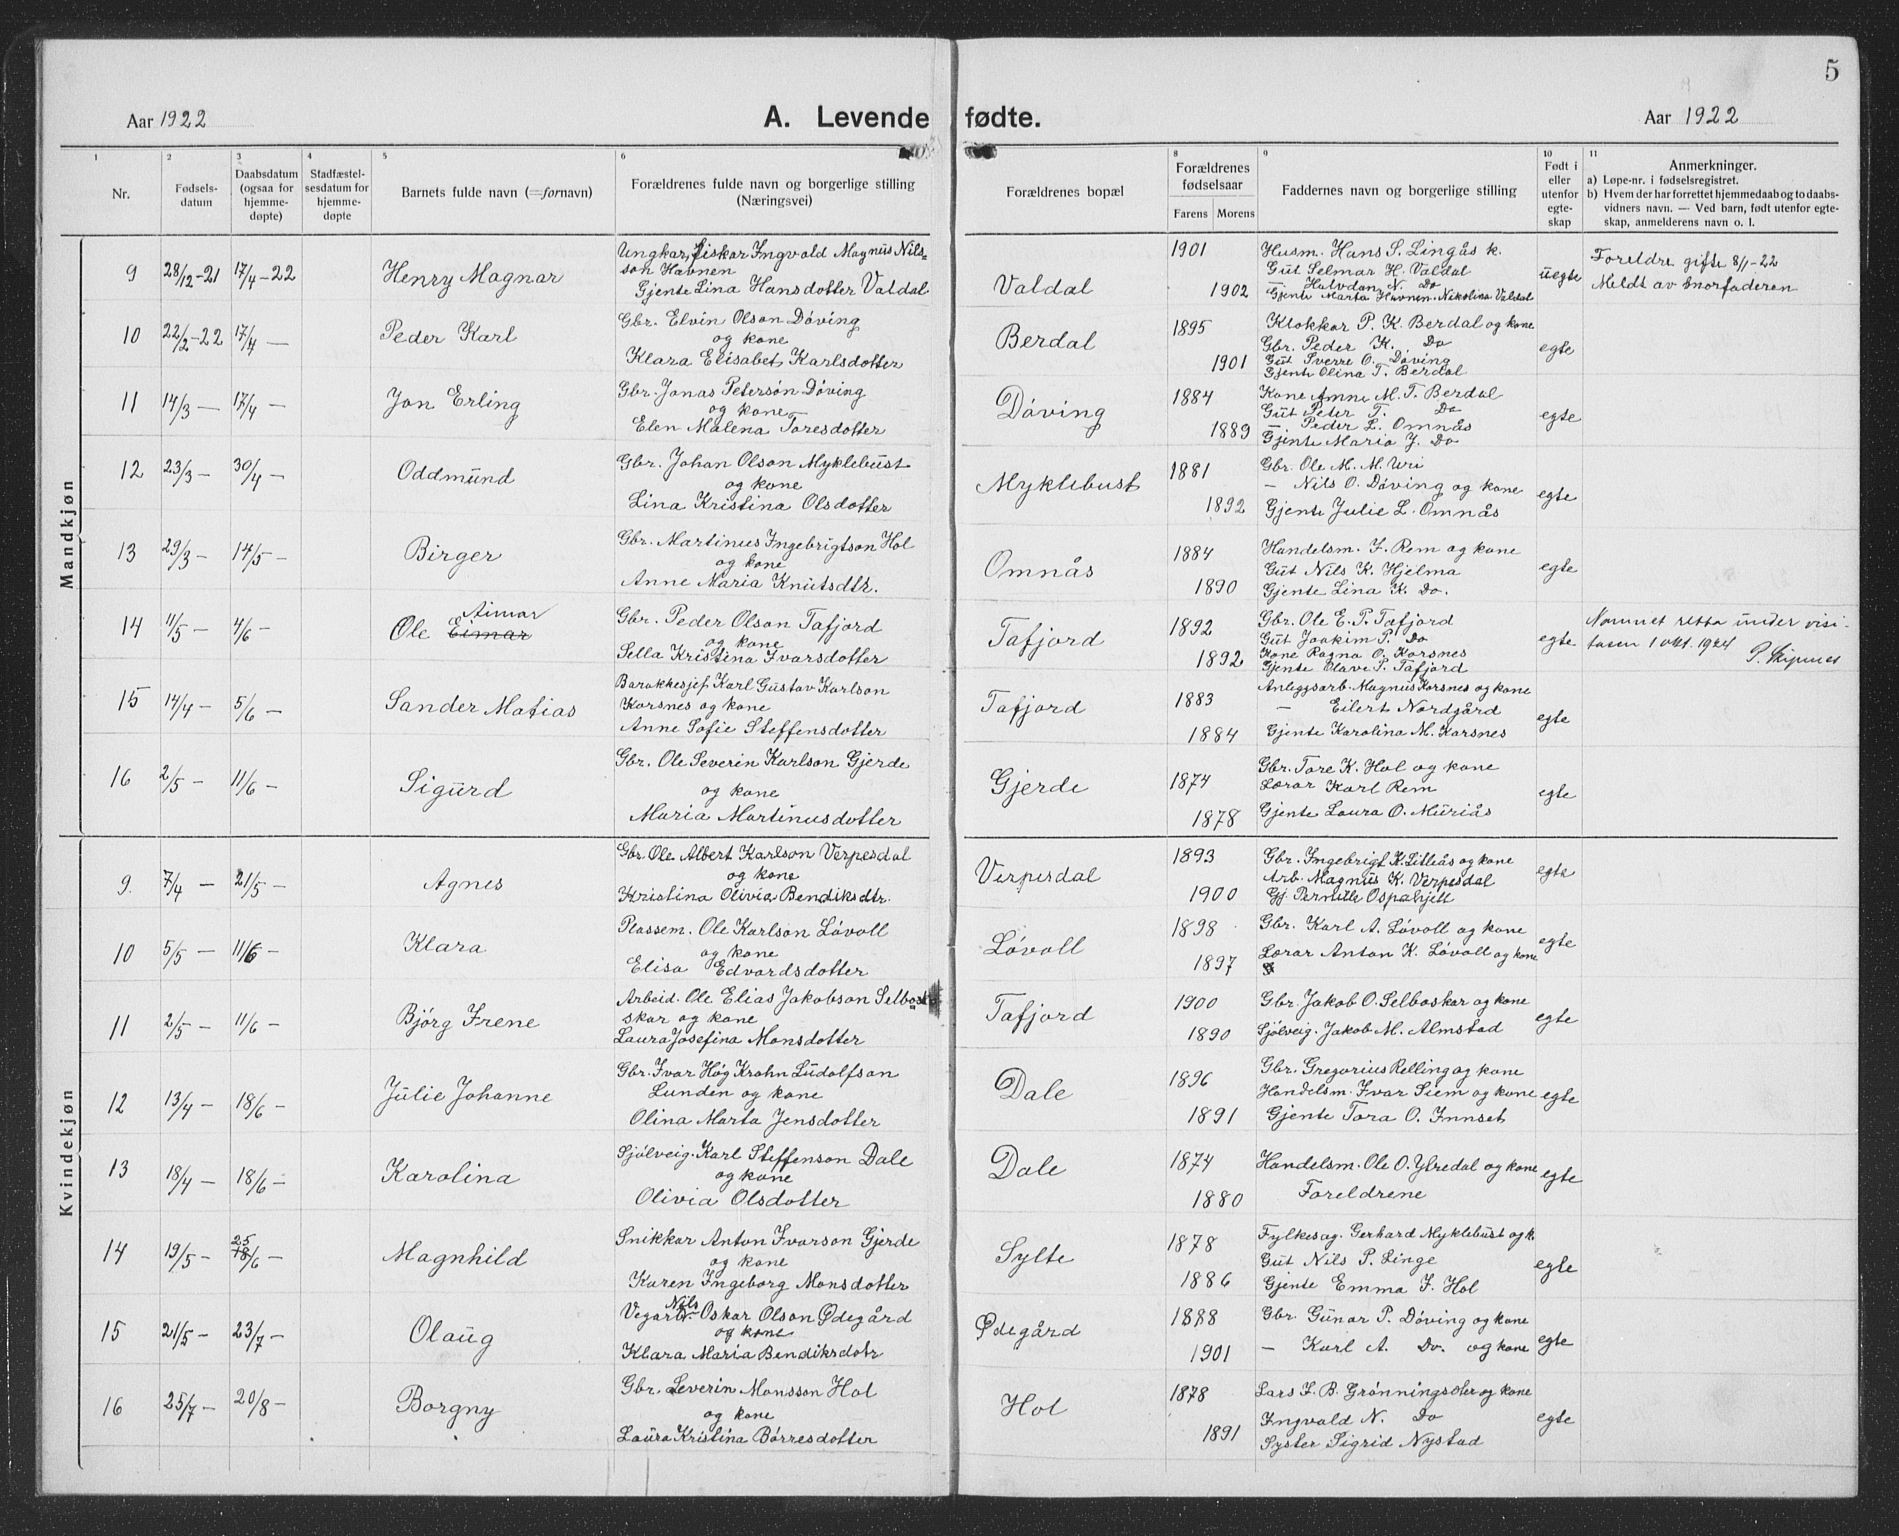 5
Aar 1922
A. Levende fødte.
Aar 1922
1 2 3 4 5 6 8 9 10 11
Nr. | Fødsels-datum | Daabsdatum (ogsaa for hjemme-døpte) | Stadfæstel-sesdatum for hjemme-døpte | Barnets fulde navn (=fornavn) | Forældrenes fulde navn og borgerlige stilling (Næringsvei) | Forældrenes bopæl | Forældrenes fødselsaar Farens Morens | Faddernes navn og borgerlige stilling | Født i eller utenfor egte-skap | Anmerkninger.
a) Løpe-nr. i fødselsregistret.
b) Hvem der har forrettet hjemmedaab og to daabs-
vidners navn. — Ved barn, født utenfor egte-
skap, anmelderens navn o. l.
Mandkjøn
9 28/12-21 17/4-22 Henry Magnar
Ungkar, fiskar Ingvald Magnus Nils-
son Havnen
Gjente Lina Hansdotter Valdal
Valdal 1901 1902
Husm. Hans S. Lingås k.
Gut Selmar H. Valdal
— Halvdan N. Do
Gjente Marta Havnen. Nikolina Valdal
uegte
Foreldre gifte 8/1-22
Meldt av morfaderen
10 22/2-22 17/4 — Peder Karl
Gbr. Elvin Olson Døving
og kone
Klara Elisabet Karlsdotter
Berdal 1895 1901
Klokkar P. K. Berdal og kone
Gbr. Peder K. Do
Gut Sverre O. Døving
Gjente Olina T. Berdal
egte
11 14/3 — 17/4 — Jon Erling
Gbr. Jonas Peterson Døving
og kone
Elen Malena Toresdotter
Døving 1884 1889
Kone Anne M. T. Berdal
Gut Peter T. Do
— Peder L. Omnås
Gjente Maria J. Do
egte
12 23/3 — 30/4 — Oddmund
Gbr. Johan Olson Myklebust
og kone
Lina Kristina Olsdotter
Myklebust 1881 1892
Gbr. Ole M. M. Uri
— Nils O. Døving og kone
Gjente Julie L. Omnås
egte
13 29/3 — 14/5 — Birger
Gbr. Martinus Ingebrigtson Hol
og kone
Anne Maria Knutsdtr.
Omnås 1884 1890
Handelsm. J. Rem og kone
Gut Nils K. Hjelma
Gjente Lina K. Do.
egte
14 11/5 — 4/6 — Aimar
Ole Eimar
Gbr. Peder Olson Tafjord
og kone
Sella Kristina Ivarsdotter
Tafjord 1892 1892
Gbr. Ole E. P. Tafjord
Gut Joakim P. Do
Kone Ragna O. Korsnes
Gjente Olave P. Tafjord
egte
Namnet retta under visi-
tasen 1 okt. 1924
P. Skipnes
15 14/4 — 5/6 — Sander Matias
Barakkesjef Karl Gustav Karlson
Korsnes og kone
Anne Sofie Steffensdotter
Tafjord 1883 1884
Anleggsarb. Magnus Korsnes og kone
— Eilert Nordgård
Gjente Karolina M. Korsnes
egte
16 2/5 — 11/6 — Sigurd
Gbr. Ole Severin Karlson Gjerde
og kone
Maria Martinusdotter
Gjerde 1874 1878
Gbr. Tore K. Hol og kone
Lærar Karl Rem
Gjente Laura O. Muriås
egte
Kvindekjøn
9. 7/4 — 21/5 — Agnes
Gbr. Ole Albert Karlson Verpesdal
og kone
Kristina Olivia Bendiksdtr.
Verpesdal 1893 1900
Gbr. Ingebrigt K. Litleås og kone
Arb. Magnus K. Verpesdal
Gj. Pernille Ospahjell
egte
10 5/5 — 11/6 — Klara
Plassem. Ole Karlson Løvoll
og kone
Elisa Edvardsdotter
Løvoll 1898 1897
Gbr. Karl A. Løvoll og kone
Lærar Anton K. Løvoll og kone
egte
11 2/5 — 11/6 — Bjørg Irene
Arbeid. Ole Elias Jakobson Selbo
skar og kone
Laura Josefina Monsdotter
Tafjord 1900 1890
Gbr. Jakob O. Selboskar og kone
Sjølveig. Jakob M. Almstad
egte
12 13/4 — 18/6 — Julie Johanne
Gbr. Ivar Høg Krohn Ludolfson
Lunden og kone
Olina Marta Jensdotter
Dale 1896 1891
Gbr. Gregorius Relling og kone
Handelsm. Ivar Siem og kone
Gjente Tora O. Innset
egte
13 18/4 — 18/6 — Karolina
Sjølveig. Karl Steffenson Dale
og kone
Olivia Olsdotter
Dale 1874 1880
Handelsm. Ole O. Ytredal og kone
Foreldrene
egte
14 19/5 — 25 18/6 — Magnhild
Snikkar Anton Ivarson Gjerde
og kone
Karen Ingeborg Monsdotter
Sylte 1878 1886
Fylkesag. Gerhard Myklebust og k
Gut Nils P. Linge
Gjente Emma I. Hol
egte
15 21/5 — 23/7 — Olaug
Nils
Vegarb. Oskar Olson Ødegård
og kone
Klara Maria Bendiksdotr
Ødegård 1888 1901
Gbr. Gunar P. Døving og kone
— Karl A. Do. og kone
egte
16 25/7 — 20/8 — Borgny
Gbr. Severin Monsson Hol
og kone
Laura Kristina Børresdotter
Hol 1878 1891
Lars I. B. Grønningsæter og kone
Ingvald N. Do
Syster Sigrid Nystad
egte